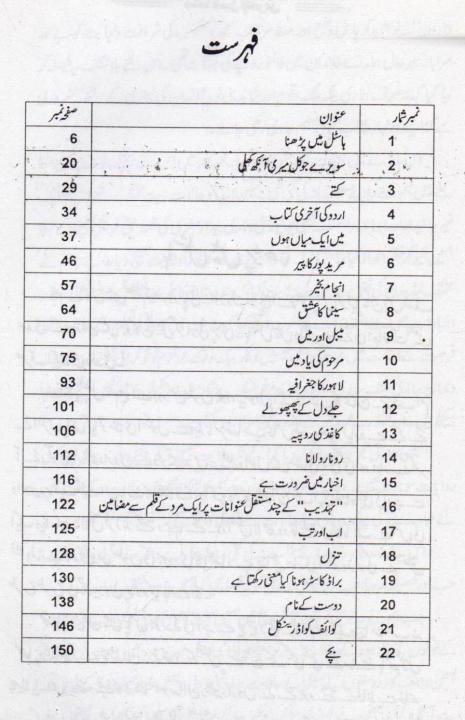 فہرست
نمبر شمار عنوان صفحہ نمبر
1 ہاسٹل میں پڑھنا 6
2 سویرے جو کل میری آنکھ کھلی 20
3 کتے 29
4 اردو کی آخری کتاب 34
5 میں ایک میاں ہوں 37
6 مرید پور کا پیر 46
7 انجام بخیر 57
8 سینما کا عشق 64
9 میبل اور میں 70
10 مرحوم کی یاد میں 75
11 لاہور کا جغرافیہ 93
12 جلے دل کے پھپھولے 101
13 کاغذی روپیہ 106
14 رونا رولانا 112
15 اخبار میں ضرورت ہے 116
16 "تہذیب" کے چند مستقل عنوانات پر ایک مرد کے قلم سے مضامین 122
17 اب اور تب 125
18 تنزل 128
19 براڈ کاسٹر ہونا کیا معنی رکھتا ہے 130
20 دوست کے نام 138
21 کوائف کواڈرینگل 146
22 بچے 150